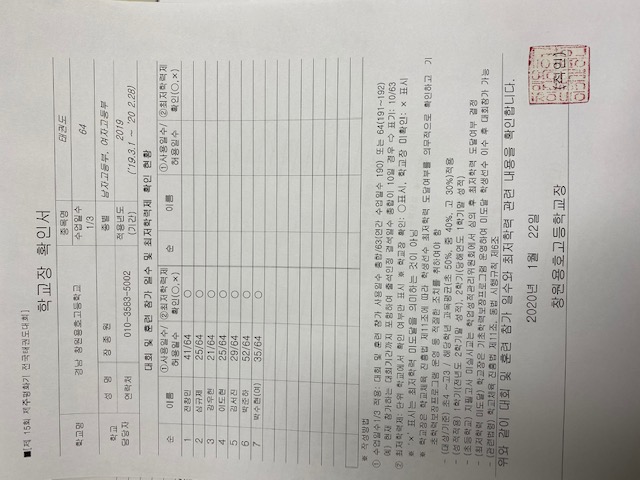 ■[제 15회 제주평화기 전국태권도대회]
학교장 확인서
학교명 경남 창원용호고등학교 종목명 태권도
수업일수 1/3 64
학교 담당자 성 명 강종원 종별 남자고등부, 여자고등부
연락처 010-3583-5002 적용년도 (기간) 2019 ('19.3.1 ~ '20 2.28)
대회 및 훈련 참가 일수 및 최저학력제 확인 현황
순 이름 ①사용일수/허용일수 ②최저학력제 확인(○,×) 순 이름 ①사용일수/허용일수 ②최저학력제 확인(○,×)
1 전창민 41/64 ○
2 심규제 25/64 ○
3 강우현 21/64 ○
4 이도현 25/64 ○
5 김서진 29/64 ○
6 박준하 52/64 ○
7 박수현(여) 35/64 ○
※ 작성방법
① 수업일수1/3 적용: 대회 및 훈련 참가 사용일수 총합/63(연간 수업일수 190) 또는 64(191~192)
예) 현재 참가하는 대회기간까지 포함하여 출석인정 결석일수 총합이 10일 경우 ⇨ 표기: 10/63
② 최저학력제: 단위 학교에서 확인 여부만 표시 ※ 학교장 확인: ○표시, 학교장 미확인: × 표시
※ '×' 표시는 최저학력 미도달을 의미하는 것이 아님
※ 학교장은 학교체육 진흥법 제11조에 따라 학생선수 최저학력 도달여부를 의무적으로 확인하고 기초학력보장프로그램 운영 등 적절한 조치를 취하여야 함
- (대상/기준) 초4~고3 / 해당학년 교과평균(초 50%, 중 40%, 고 30%)적용
- (성적적용) 1학기(전년도 2학기말 성적), 2학기(당해연도 1학기말 성적)
- (초등학교) 지필고사 미실시교는 학업성적관리위원회에서 심의 후 최저학력 도달여부 결정
- (최저학력 미도달) 학교장은 기초학력보장프로그램 운영하여 미도달 학생선수 이수 후 대회참가 가능
- (관련법령) 학교체육 진흥법 제11조, 동법 시행규칙 제6조
위와 같이 대회 및 훈련 참가 일수와 최저학력 관련 내용을 확인합니다.
2020년 1월 22일
창원용호고등학교장 (직인)